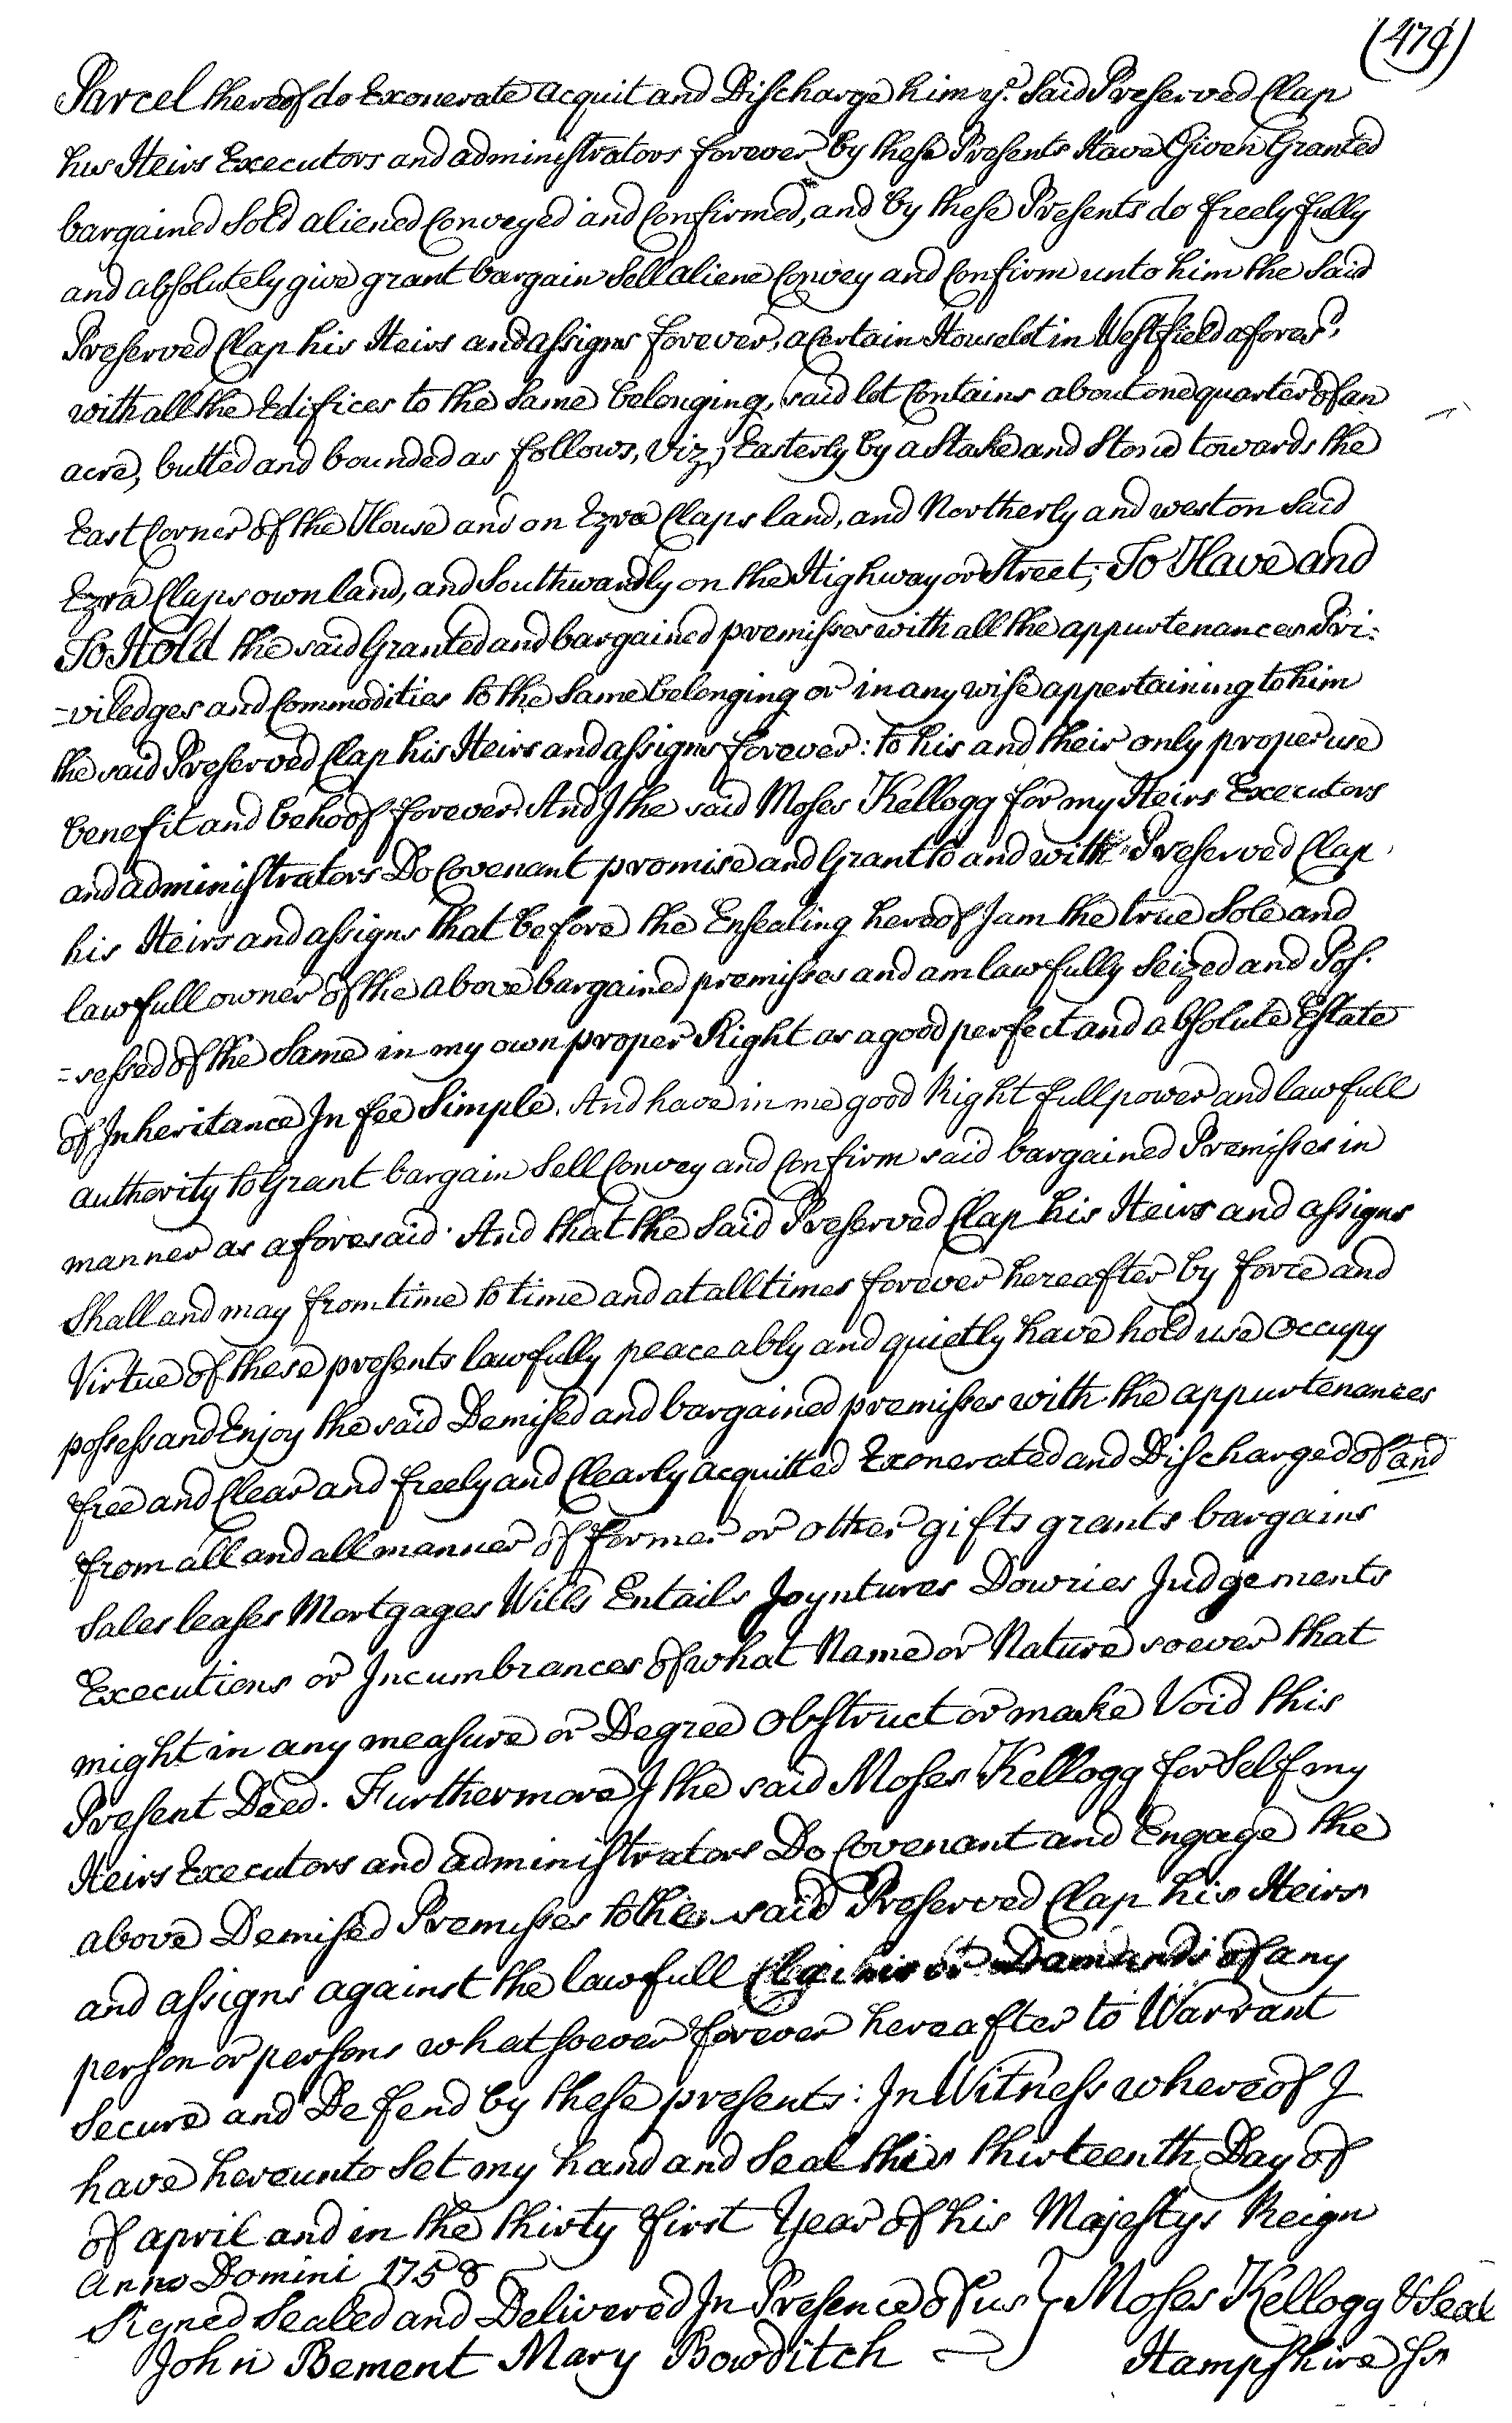 (479)
Parcel thereof do Exonerate acquit and Discharge him ye. Said Preserved Clap
his Heirs Executors and administrators forever by these Presents Have Given Granted
bargained Sold aliened Conveyed and Confirmed, and by these Presents do freely fully
and absolutely give grant bargain Sell aliene Convey and Confirm unto him the Said
Preserved Clap his Heirs and assigns forever, a Certain Houselot in Westfield aforesd,
with all the Edifices to the Same belonging, said lot Contains about one quarter of an
acre, butted and bounded as follows, Viz; Easterly by a Stake and Stone towards the
East Corner of the House and on Ezra Claps land, and Northerly and west on Said
Ezra Claps own land, and Southwardly on the Highway or Street; To Have and
To Hold the said Granted and bargained premisses with all the appurtenances Pri:
=viledges and Commodities to the Same belonging or in any wise appertaining to him
the said Preserved Clap his Heirs and assigns forever: to his and their only proper use
benefit and behoof forever. And I the said Moses Kellogg for my Heirs Executors
and administrators Do Covenant promise and Grant to and with Preserved Clap
his Heirs and assigns that before the Ensealing hereof I am the true Sole and
lawfull owner of the above bargained premisses and am lawfully Seized and Pos:
=sessed of the Same in my own proper Right as a good perfect and absolute Estate
of Inheritance In fee Simple. And have in me good Right full power and lawfull
authority to Grant bargain Sell Convey and Confirm said bargained Premisses in
manner as aforesaid. And that the Said Preserved Clap his Heirs and assigns
Shall and may from time to time and at all times forever hereafter by force and
Virtue of these presents lawfully peaceably and quietly have hold use Occupy
possess and Enjoy the said Demised and bargained premisses with the appurtenances
free and Clear and freely and Clearly acquitted Exonerated and Discharged of and
from all and all manner of former or other gifts grants bargains
Sales leases Mortgages Wills Entails Joyntures Dowries Judgements
Executions or Incumbrances of what Name or Nature soever that
might in any measure or Degree Obstruct or make Void this
Present Deed. Furthermore I the said Moses Kellogg for Self my
Heirs Executors and administrators Do Covenant and Engage the
above Demised Premisses to the said Preserved Clap his Heirs
and assigns against the lawfull Claims or Demands of any
person or persons whatsoever forever hereafter to Warrant
Secure and Defend by these presents: In Witness whereof I
have hereunto Set my hand and Seal this thirteenth Day of
of april and in the thirty first Year of his Majestys Reign
Anno Domini 1758
Signed Sealed and Delivered In Presence of us } Moses Kellogg & Seal
John Bement Mary Bowditch Hampshire Ss